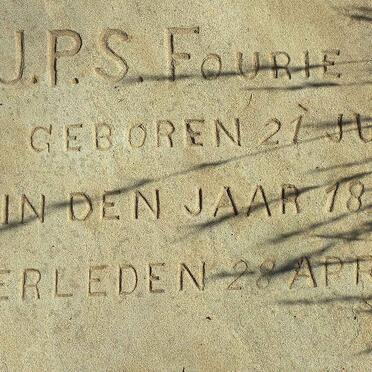 J.P.S. FOURIE
GEBOREN 21 JU
IN DEN JAAR 18
ERLEDEN 28 APR